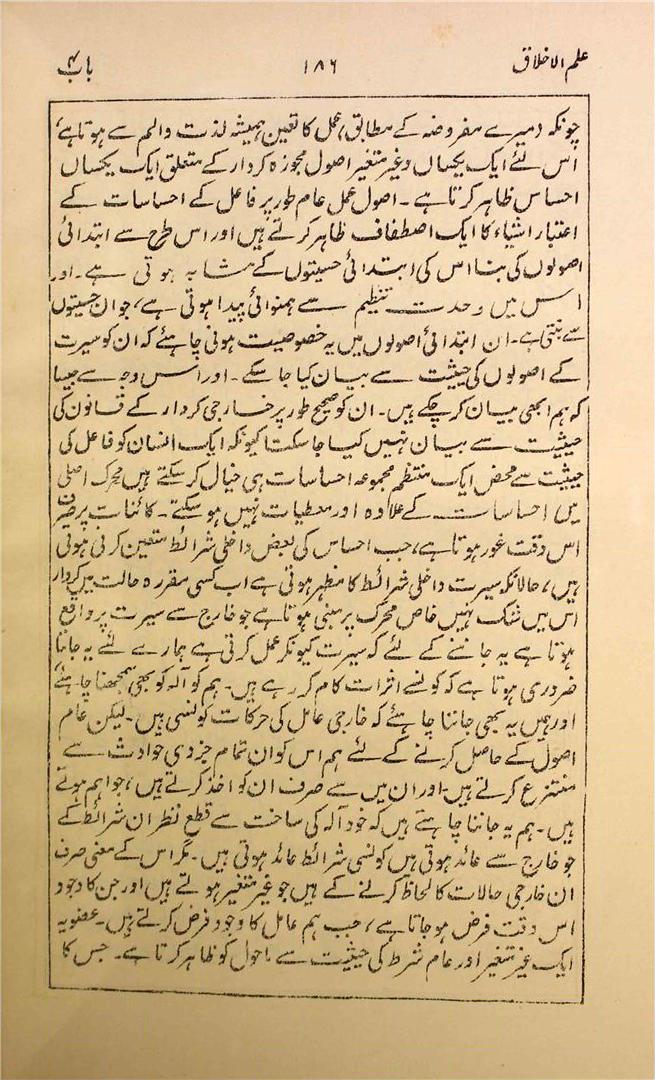 علم الاخلاق ۱۸۶ باب ۴
چونکہ (میرے مفروضہ کے مطابق) عمل کا تعین ہمیشہ لذت والم سے ہوتا ہے،
اس لئے ایک یکساں و غیر متغیر اصول مجوزہ کردار کے متعلق ایک یکساں
احساس ظاہر کرتا ہے۔ اصول عمل عام طور پر فاعل کے احساسات کے
اعتبار اشیاء کا ایک اصطفاف ظاہر کرتے ہیں اور اس طرح سے ابتدائی
اصولوں کی بنا اس کی ابتدائی حسیتوں کے مشابہ ہوتی ہے۔ اور
اس میں وحدت تنظیم سے ہمنوائی پیدا ہوتی ہے، جو ان حسیتوں
سے بنتی ہے۔ ان ابتدائی اصولوں میں یہ خصوصیت ہونی چاہئے کہ ان کو سیرت
کے اصولوں کی حیثیت سے بیان کیا جا سکے۔ اور اس وجہ سے جیسا
کہ ہم ابھی بیان کر چکے ہیں۔ ان کو صحیح طور پر خارجی کردار کے قانون کی
حیثیت سے بیان نہیں کیا جا سکتا کیونکہ ایک انسان کو فاعل کی
حیثیت سے محض ایک منتظم مجموعہ احساسات ہی خیال کر سکتے ہیں محرک اصلی
میں احساسات کے علاوہ اور معطیات نہیں ہو سکتے۔ کائنات پر صرف
اس وقت غور ہوتا ہے، جب احساس کی بعض داخلی شرائط متعین کرنی ہوتی
ہیں، حالانکہ سیرت داخلی شرائط کا مظہر ہوتی ہے اب کسی مقررہ حالت میں کردار
اس میں شک نہیں خاص محرک پر مبنی ہوتا ہے جو خارج سے سیرت پر واقع
ہوتا ہے یہ جاننے کے لئے کہ سیرت کیونکر عمل کرتی ہے ہمارے لئے یہ جاننا
ضروری ہوتا ہے کہ کونسے اثرات کام کر رہے ہیں۔ ہم کو آلہ کو بھی سمجھنا چاہئے
اور ہمیں یہ بھی جاننا چاہئے کہ خارجی عامل کی حرکات کونسی ہیں۔ لیکن عام
اصول کے حاصل کرنے کے لئے ہم اس کو ان تمام جزوی حوادث سے
منتزع کرتے ہیں۔ اور ان میں سے صرف ان کو اخذ کرتے ہیں، جو اہم ہوتے
ہیں۔ ہم یہ جاننا چاہتے ہیں کہ خود آلہ کی ساخت سے قطع نظر ان شرائط کے
جو خارج سے عائد ہوتی ہیں کونسی شرائط عائد ہوتی ہیں۔ مگر اس کے معنی صرف
ان خارجی حالات کا لحاظ کرنے کے ہیں جو غیر متغیر ہوتے ہیں اور جن کا وجود
اس وقت فرض ہو جاتا ہے، جب ہم عامل کا وجود فرض کرتے ہیں۔ عضویہ
ایک غیر متغیر اور عام شرط کی حیثیت سے ماحول کو ظاہر کرتا ہے۔ جس کا